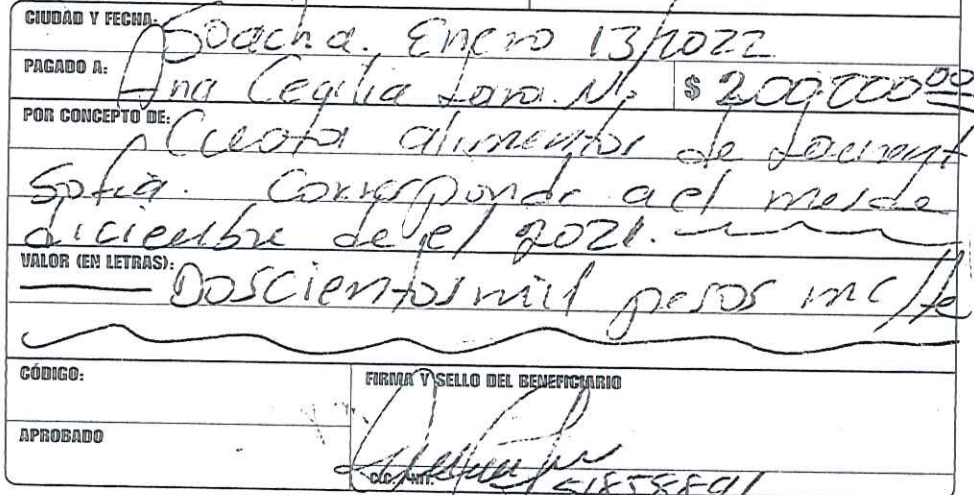 CIUDAD Y FECHA: Soacha. Enero 13/2022
PAGADO A: Ana Cecilia Lara. N. $ 200.000 00
POR CONCEPTO DE: Cuota alimentos de
Sofia. Corresponde a el mes de
diciembre de el 2021.
VALOR (EN LETRAS):
Doscientos mil pesos mc/te
CÓDIGO:
FIRMA Y SELLO DEL BENEFICIARIO
APROBADO
C.C. / NIT. 51858891